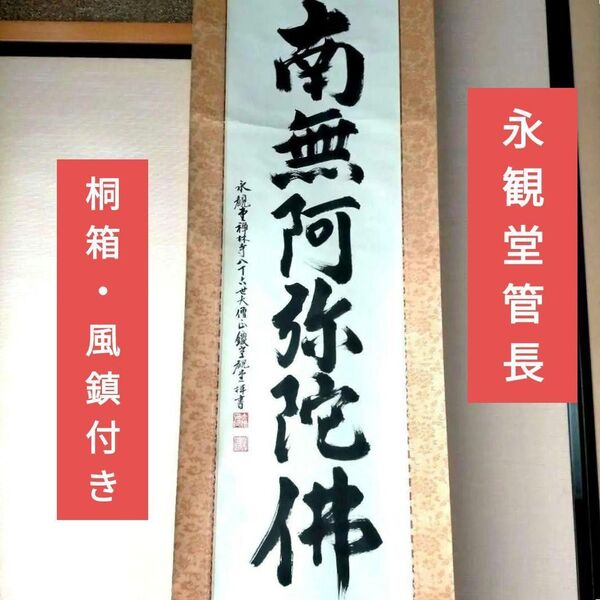 永観堂管長
南無阿弥陀佛
永観堂禅林寺八十六世大僧正
桐箱・風鎮付き